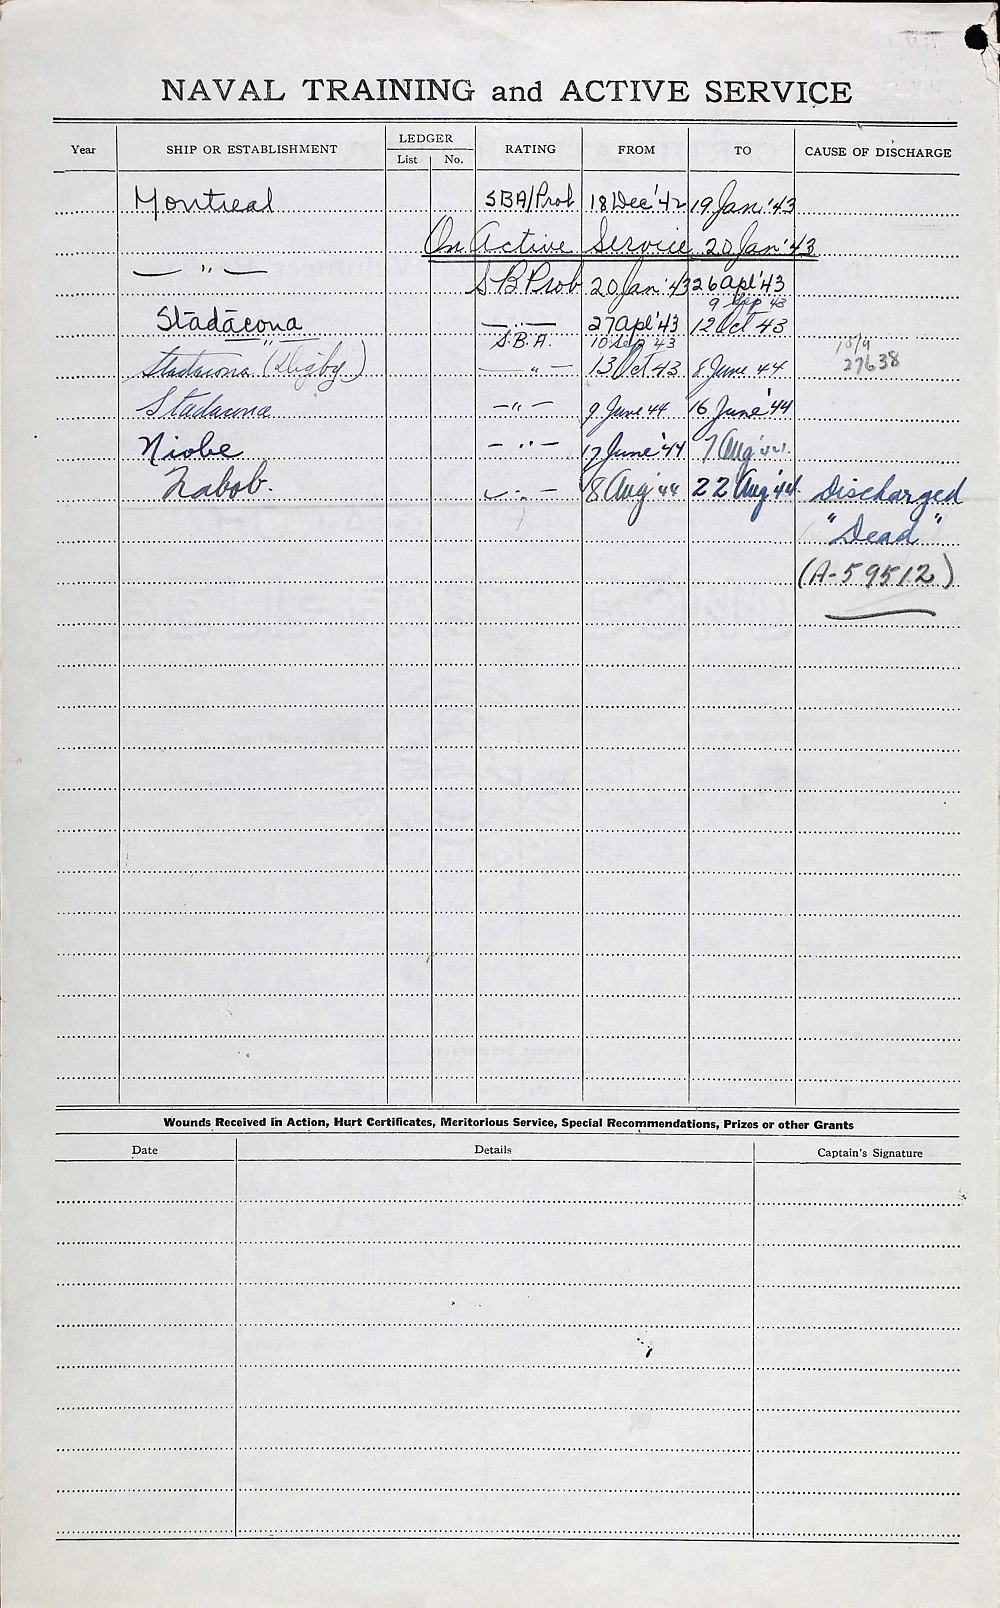 NAVAL TRAINING and ACTIVE SERVICE
Year SHIP OR ESTABLISHMENT LEDGER List No. RATING FROM TO CAUSE OF DISCHARGE
Montreal SBA/Prob 18 Dec '42 19 Jan. '43
On Active Service 20 Jan '43
— " — S B Prob 20 Jan '43 26 Apl '43
9 Sep 43
Stadacona — " — 27 Apl '43 12 Oct 43
" S.B.A. 10 Sep 43
Stadacona (Digby) — " — 13 Oct 43 8 June 44 27638
Stadacona — " — 9 June 44 16 June '44
Niobe — " — 17 June '44 7 Aug '44
Nabob. — " — 8 Aug '44 22 Aug '44 Discharged
"Dead"
(A-59512)
Wounds Received in Action, Hurt Certificates, Meritorious Service, Special Recommendations, Prizes or other Grants
Date Details Captain's Signature